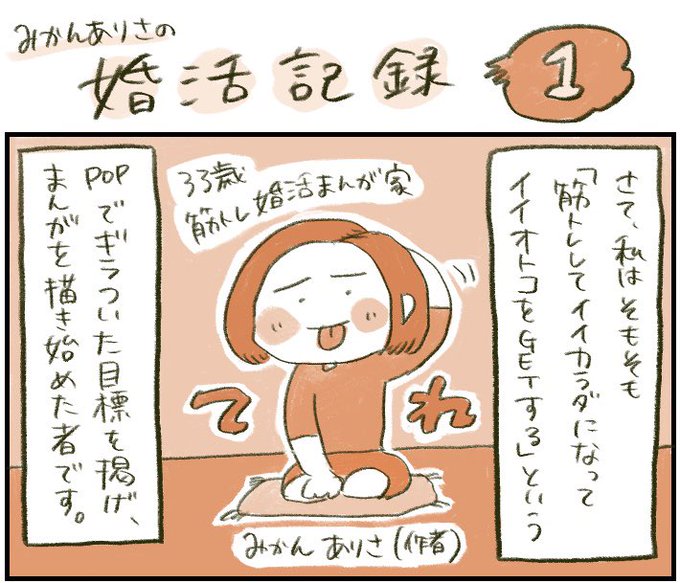 みかんありさの
婚活記録 1
さて、私はそもそも
「筋トレしてイイカラダになって
イイオトコをGETする」という
33歳
筋トレ婚活まんが家
てれ
みかん ありさ(作者)
POPでギラついた目標を掲げ、
まんがを描き始めた者です。